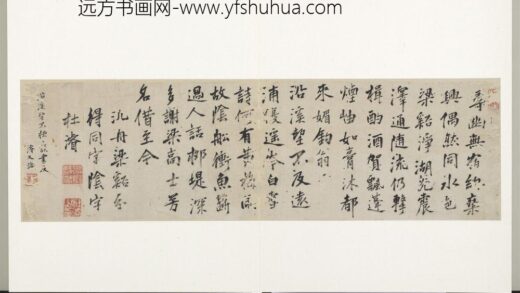 远方书画网-www.yfshuhua.com
尋幽無宿約乘
興偶然同水色
梁谿淨湖光震
澤通隨流仍轉
楫酌酒賀飄蓬
煙岫如膏沐都
來媚釣翁
沿溪望不及遠
浦漫遙空白
詩何有黃梅
故陰船衝魚斷
過人話柳堤深
多謝梁高士芳
名借至今
泛舟梁谿分
得同字陰字
杜濬